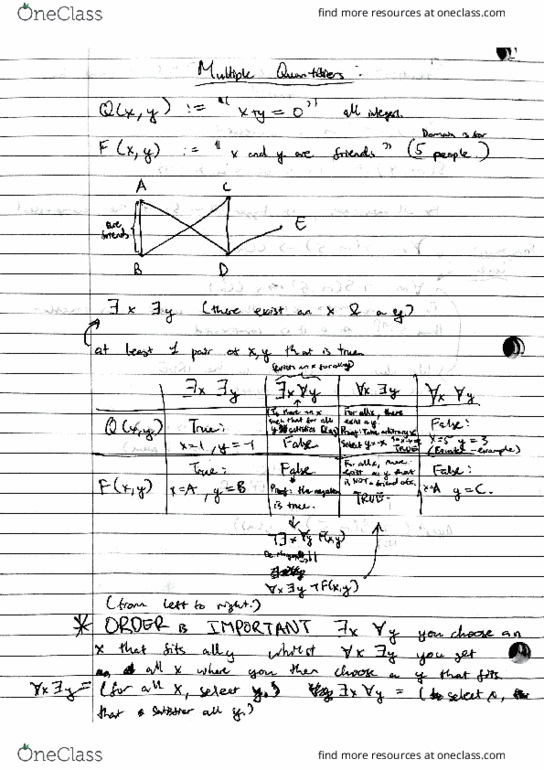 OneClass
find more resources at oneclass.com
Multiple Quantifiers:
Q(x,y) := "x+y=0" all integers.
Domain is for
F(x,y) := "x and y are friends" (5 people.)
A C
E
are friends
B D
∃x ∃y (there exist an x & a y)
at least 1 pair of x,y that is true.
(exists an x for all y)
∃x ∃y ∃x ∀y ∀x ∃y ∀x ∀y
Q(x,y)
True:
x=1, y=-1
Is there an x such that for all y satisfies
False
For all x, there exist a y.
Proof: Take arbitrary x
Select y=-x
TRUE
False:
x=5 y=3
F(x,y)
True:
x=A, y=B
False
Proof: the negation is true.
For all x, there exist a y that is NOT a friend of x.
TRUE.
False:
x=A y=C.
¬∃x ∀y F(x,y)
∀x ∃y ¬F(x,y)
(from left to right.)
* ORDER is IMPORTANT ∃x ∀y you choose an
x that fits all y whilst ∀x ∃y you get
all x where you then choose a y that fits.
∀x ∃y = (for all x, select y.) ∃x ∀y = (select x,
that satisfies all y.)
OneClass
find more resources at oneclass.com